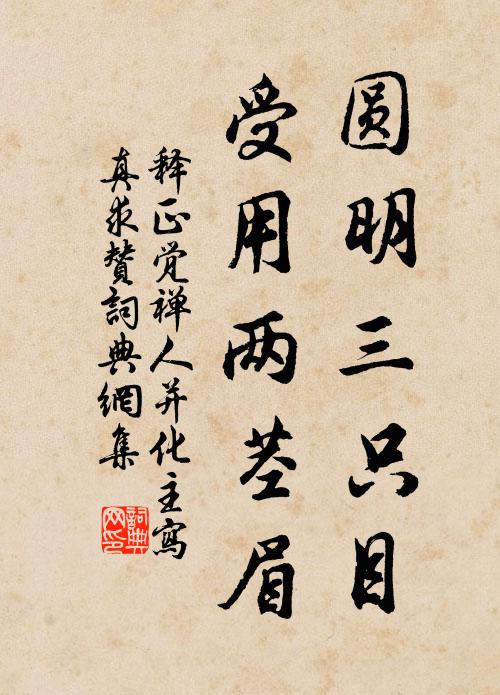 圆明三只目
受用两茎眉
释正觉禅人并化主寫
真求贊詞典網集
詞典网印